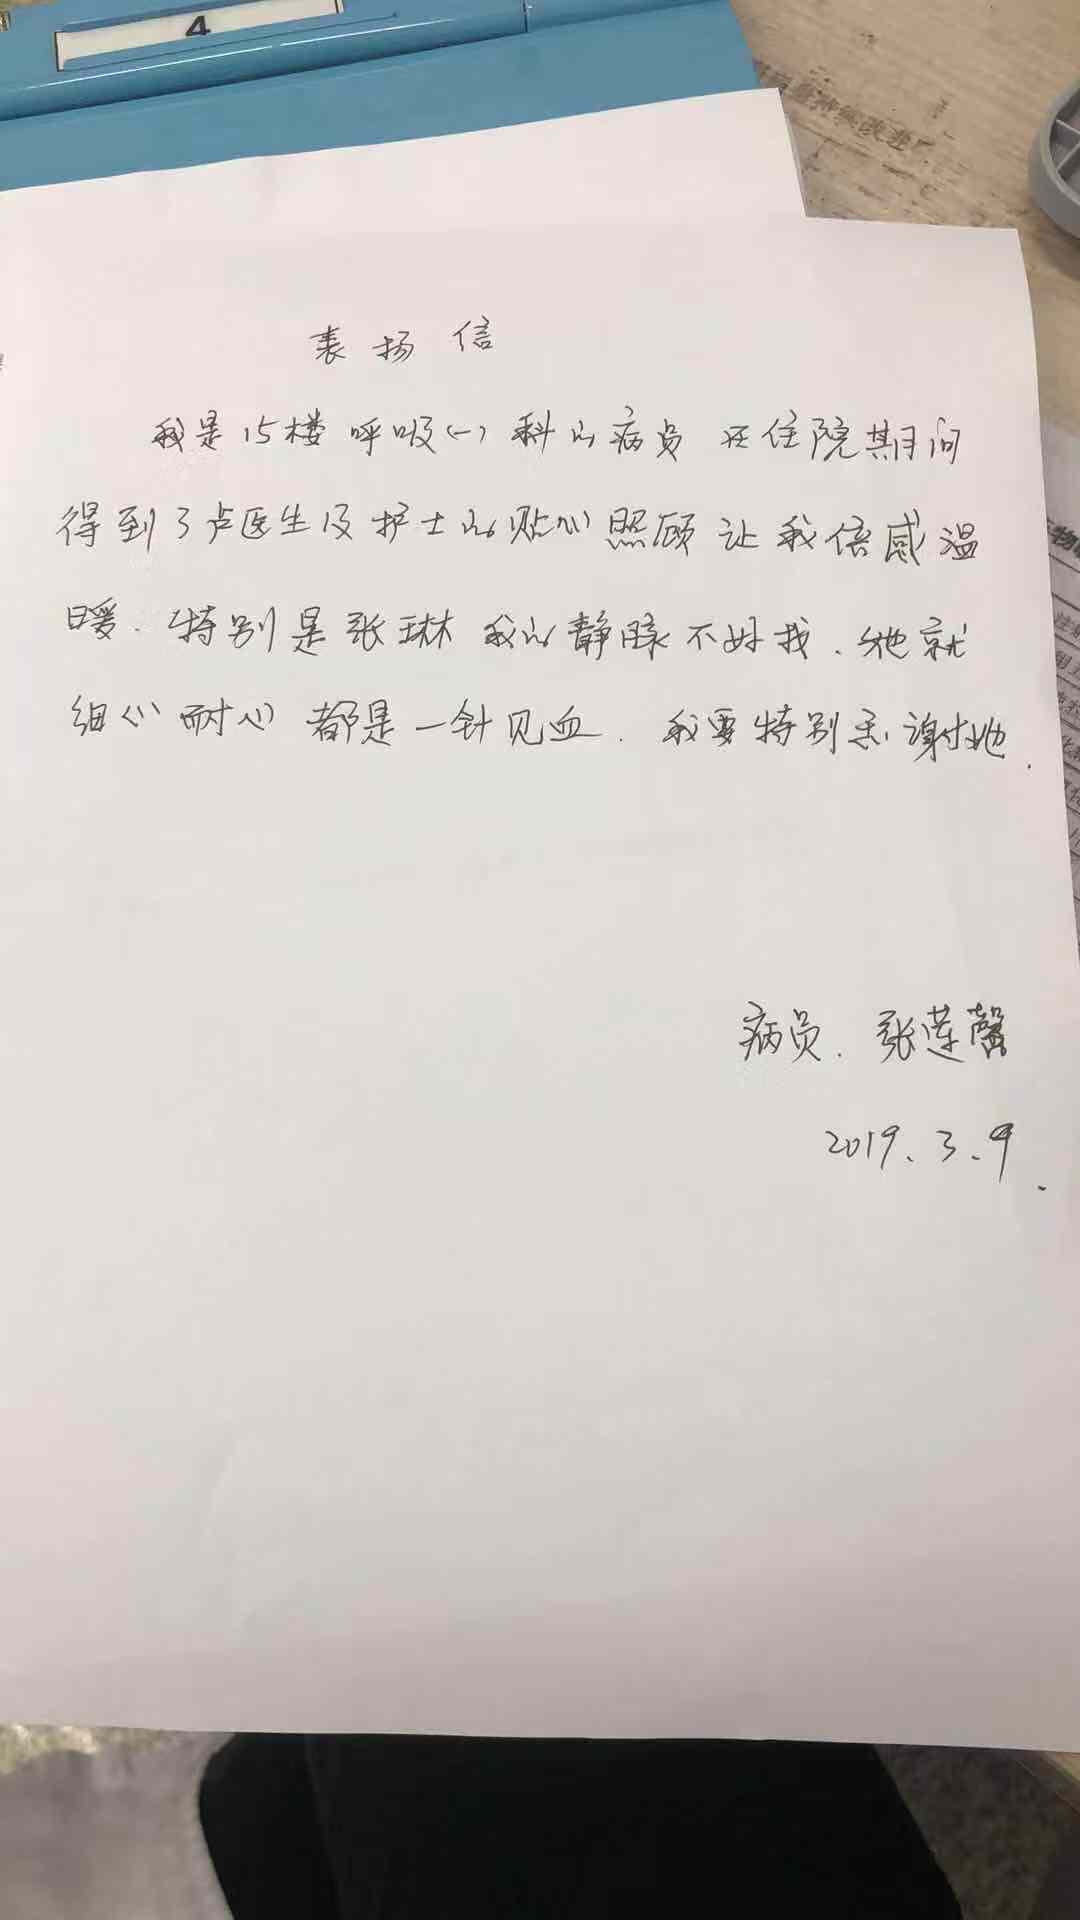 4
表扬信
我是15楼呼吸(一)科的病员 在住院期间
得到了卢医生及护士的贴心照顾 让我倍感温
暖.特别是张琳 我的静脉不好找.她就
细心耐心 都是一针见血.我要特别感谢她.
病员.张莲馨
2019.3.9.